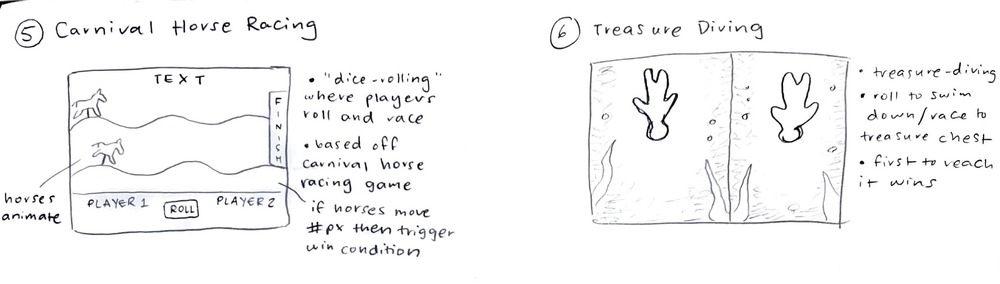 5 Carnival Horse Racing
TEXT
FINISH
PLAYER 1
ROLL
PLAYER 2
horses
animate
• "dice-rolling"
where players
roll and race
• based off
carnival horse
racing game
if horses move
#px then trigger
win condition
6 Treasure Diving
• treasure-diving
• roll to swim
down/race to
treasure chest
• first to reach
it wins